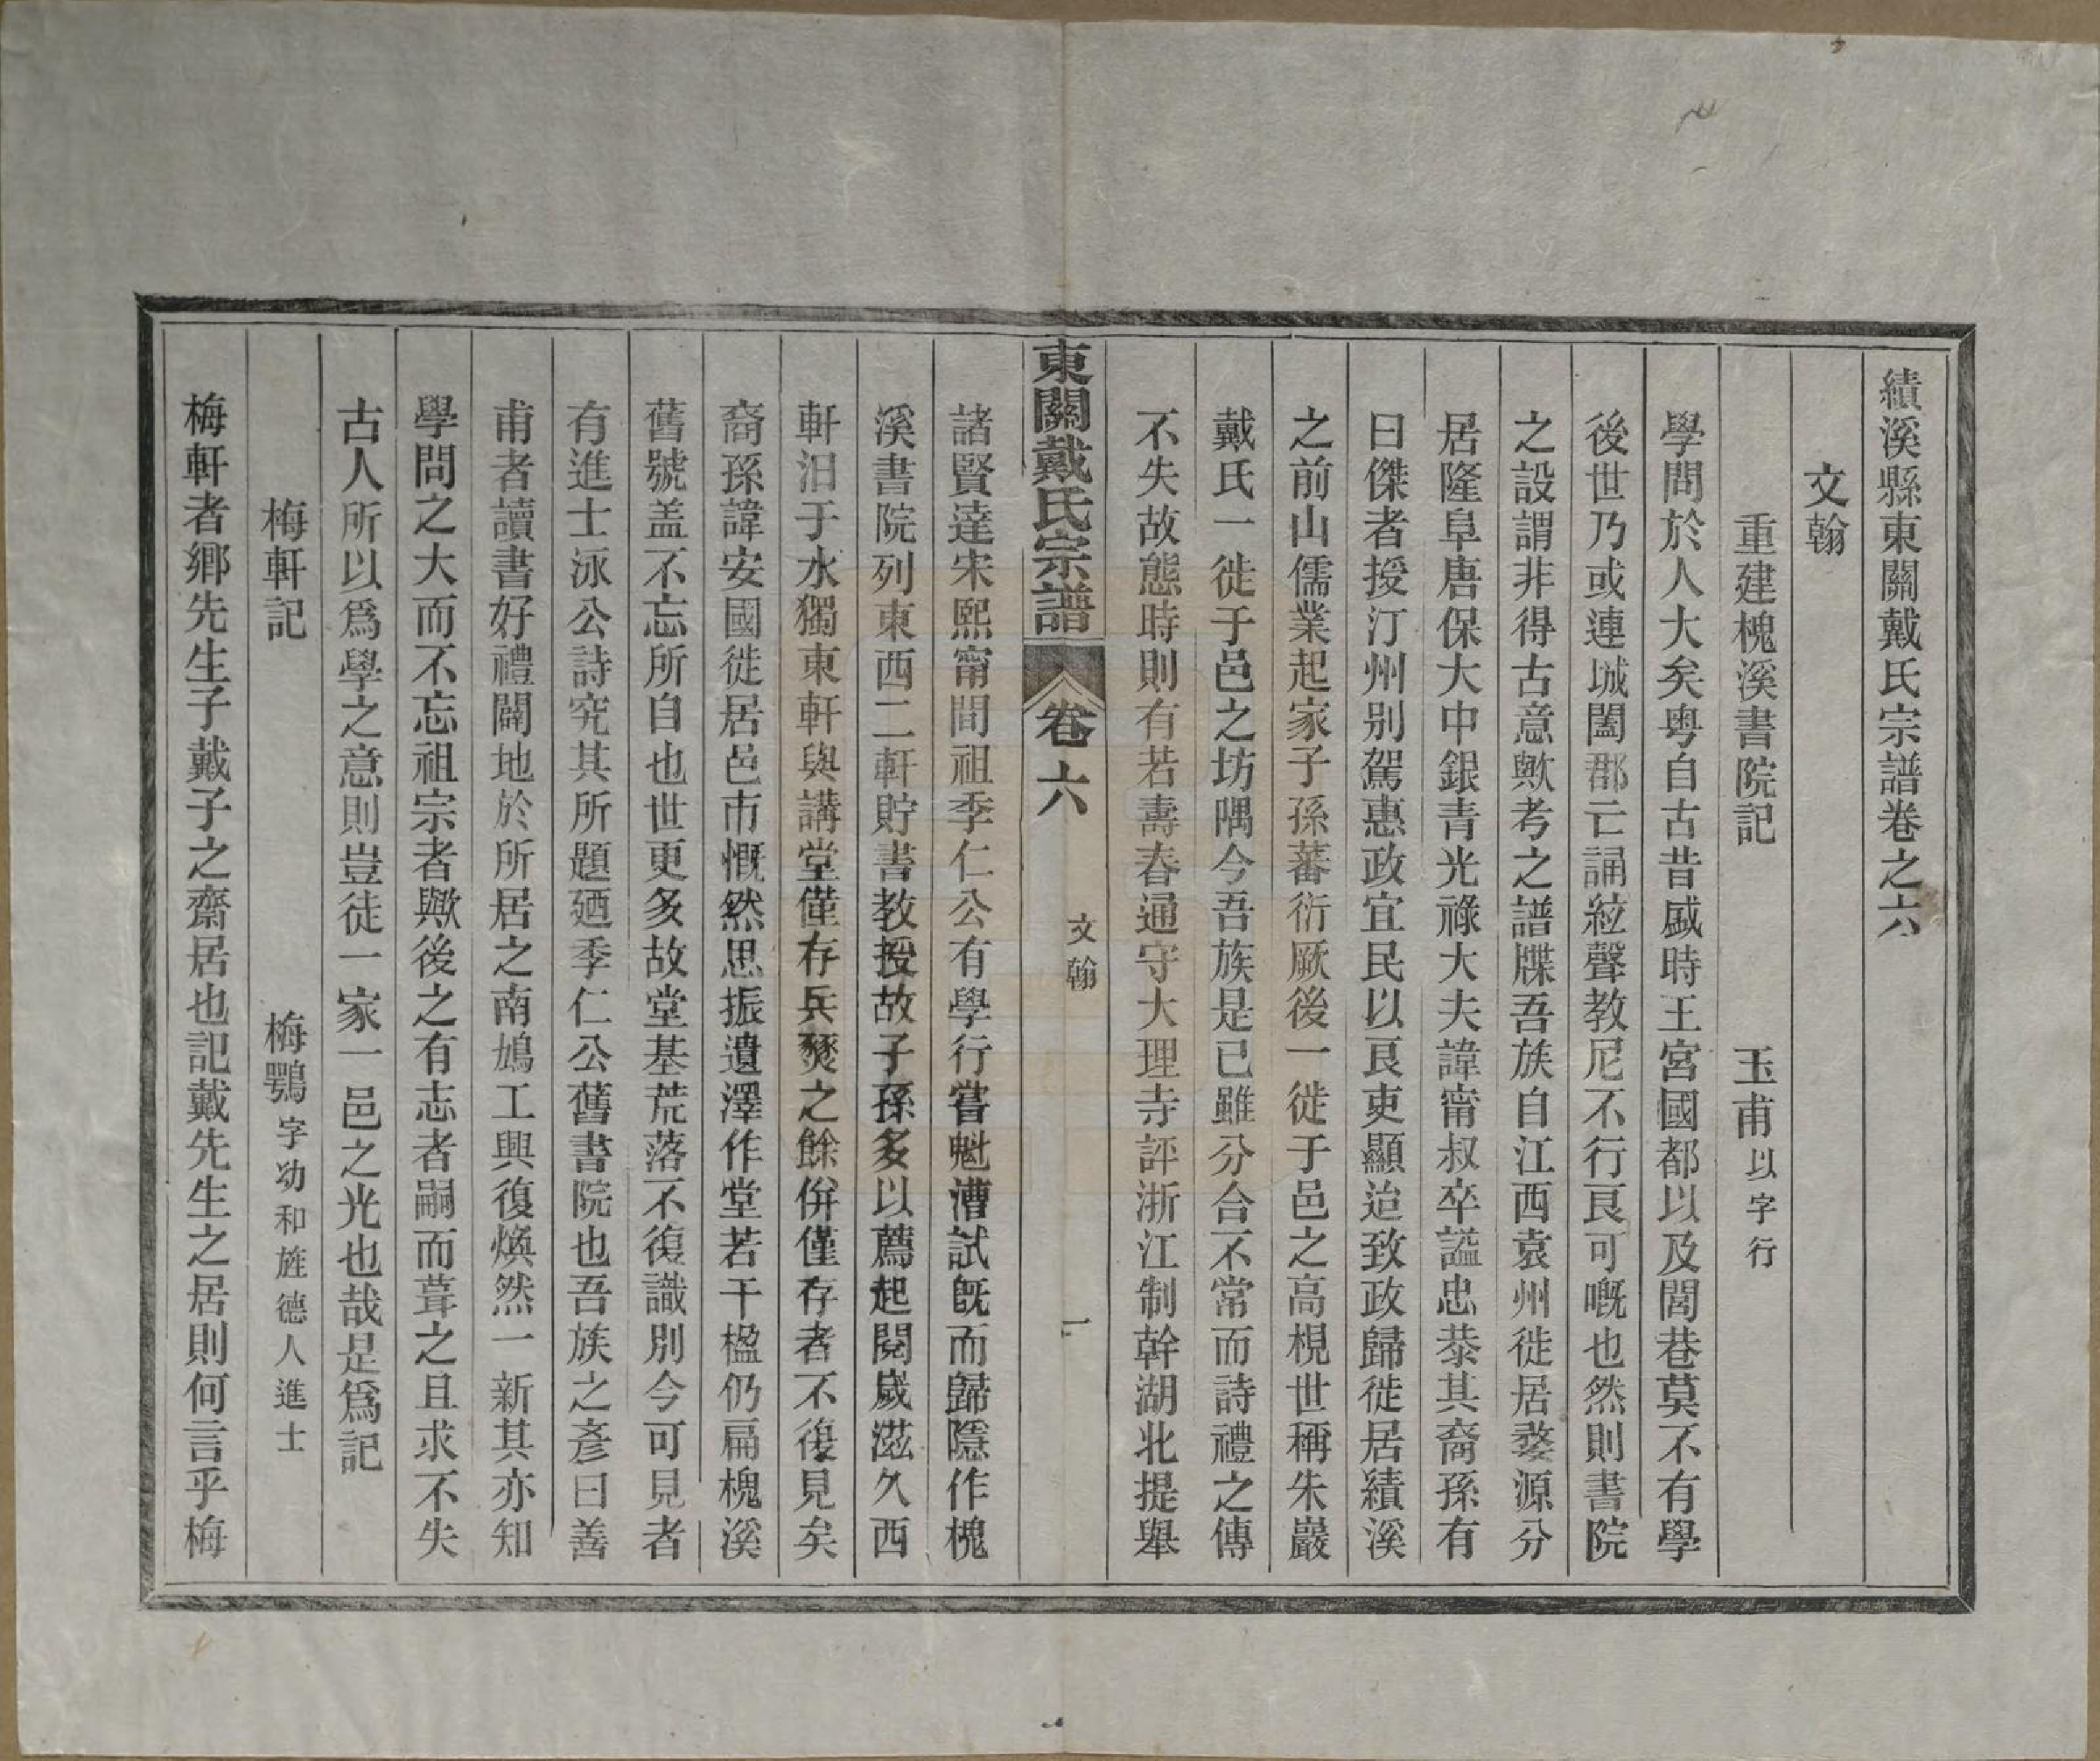 績溪縣東關戴氏宗譜卷之六
文翰
重建槐溪書院記　玉甫以字行
學問於人大矣粵自古昔盛時王宮國都以及閭巷莫不有學
後世乃或連城闔郡亡誦絃聲教尼不行良可嘅也然則書院
之設謂非得古意歟考之譜牒吾族自江西袁州徙居婺源分
居隆阜唐保大中銀青光祿大夫諱甯叔卒謚忠恭其裔孫有
曰傑者授汀州别駕惠政宜民以良吏顯迨致政歸徙居績溪
之前山儒業起家子孫蕃衍厥後一徙于邑之高梘世稱朱巖
戴氏一徙于邑之坊隅今吾族是已雖分合不常而詩禮之傳
不失故態時則有若壽春通守大理寺評浙江制幹湖北提舉
東關戴氏宗譜　卷六　文翰　一
諸賢達宋熙甯間祖季仁公有學行嘗魁漕試旣而歸隱作槐
溪書院列東西二軒貯書教授故子孫多以薦起閱歲滋久西
軒汨于水獨東軒與講堂僅存兵燹之餘併僅存者不復見矣
裔孫諱安國徙居邑市慨然思振遺澤作堂若干楹仍扁槐溪
舊號盖不忘所自也世更多故堂基荒落不復識別今可見者
有進士泳公詩究其所題廼季仁公舊書院也吾族之彥曰善
甫者讀書好禮闢地於所居之南鳩工興復煥然一新其亦知
學問之大而不忘祖宗者歟後之有志者嗣而葺之且求不失
古人所以爲學之意則豈徒一家一邑之光也哉是爲記
梅軒記　梅鶚字幼和旌德人進士
梅軒者鄉先生子戴子之齋居也記戴先生之居則何言乎梅